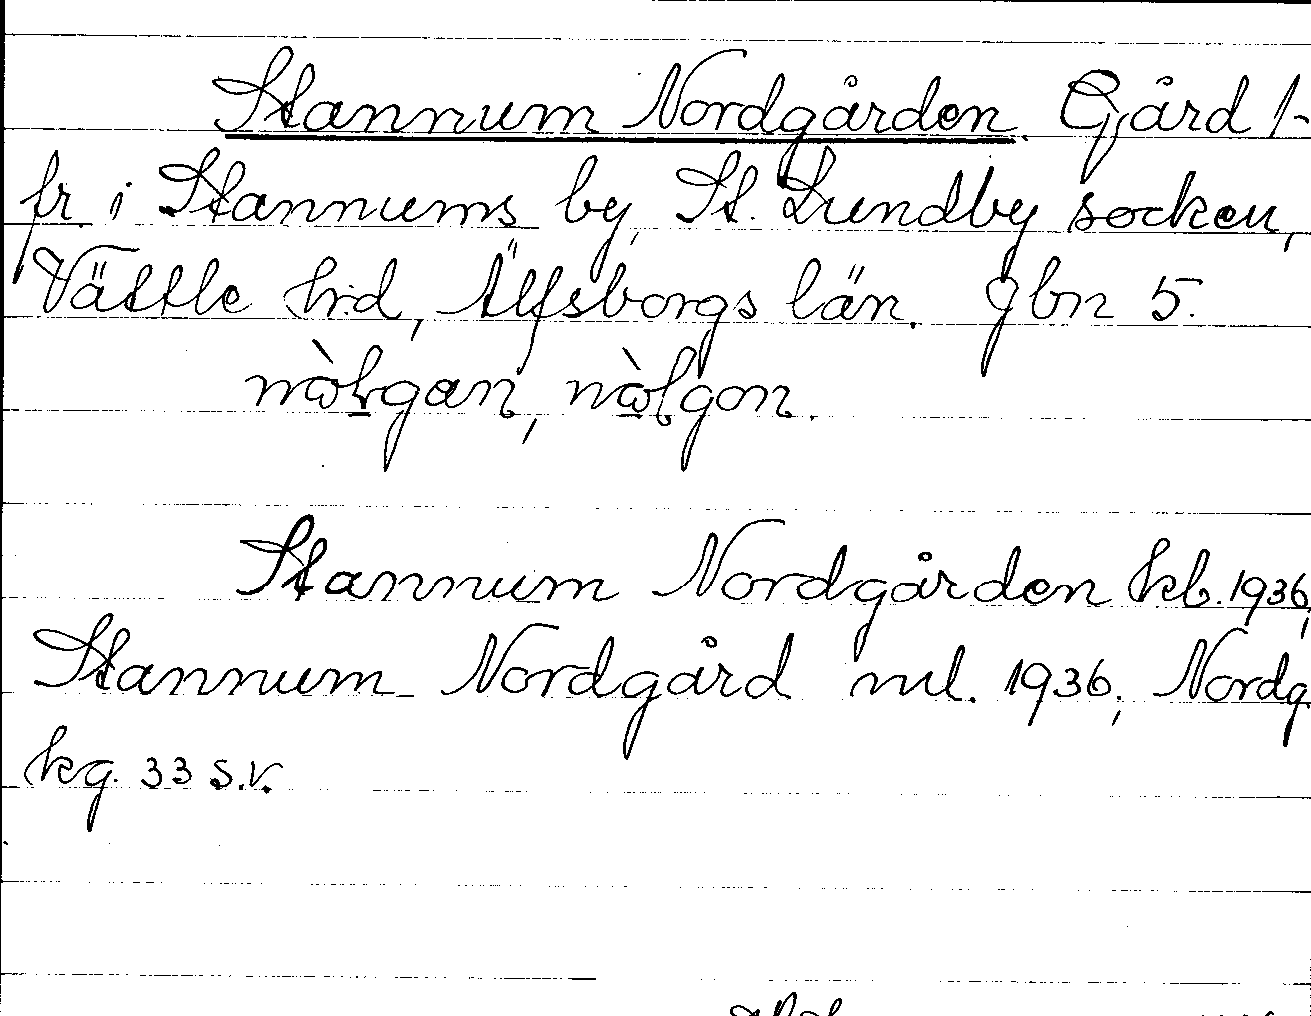 Stannum Nordgården. Gård 1-
fr. i Stannums by, St. Lundby socken,
Vättle hd, Älfsborgs län. Jbn 5.
Stannum Nordgården kb. 1936,
Stannum Nordgård ml. 1936, Nordg
kg. 33 s.v.